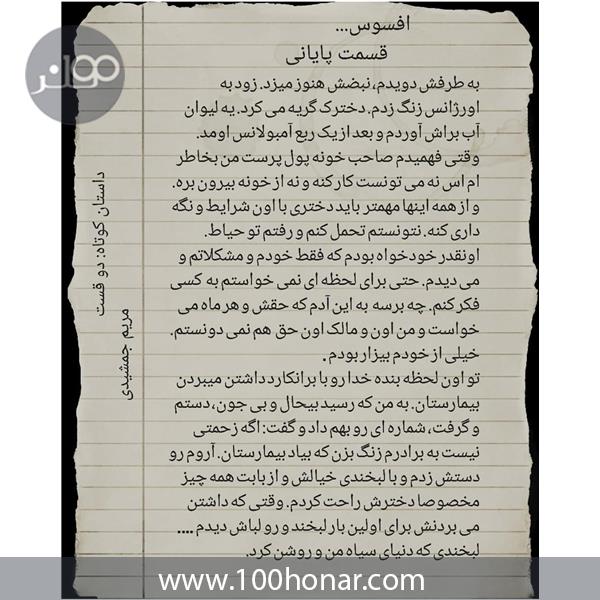 افسوس...
قسمت پایانی
به طرفش دویدم، نبضش هنوز میزد. زود به
اورژانس زنگ زدم. دخترک گریه می کرد. یه لیوان
آب براش آوردم و بعد از یک ربع آمبولانس اومد.
وقتی فهمیدم صاحب خونه پول پرست من بخاطر
ام اس نه می تونست کار کنه و نه از خونه بیرون بره.
و از همه اینها مهمتر باید دختری با اون شرایط و نگه
داری کنه. نتونستم تحمل کنم و رفتم تو حیاط.
اونقدر خودخواه بودم که فقط خودم و مشکلاتم و
می دیدم. حتی برای لحظه ای نمی خواستم به کسی
فکر کنم. چه برسه به این آدم که حقش و هر ماه می
خواست و من اون و مالک اون حق هم نمی دونستم.
خیلی از خودم بیزار بودم .
تو اون لحظه بنده خدا رو با برانکارد داشتن میبردن
بیمارستان. به من که رسید بیحال و بی جون، دستم
و گرفت، شماره ای رو بهم داد و گفت: اگه زحمتی
نیست به برادرم زنگ بزن که بیاد بیمارستان. آروم رو
دستش زدم و با لبخندی خیالش و از بابت همه چیز
مخصوصا دخترش راحت کردم. وقتی که داشتن
می بردنش برای اولین بار لبخند و رو لباش دیدم ....
لبخندی که دنیای سیاه من و روشن کرد.
داستان کوتاه: دو قست
مریم جمشیدی
www.100honar.com